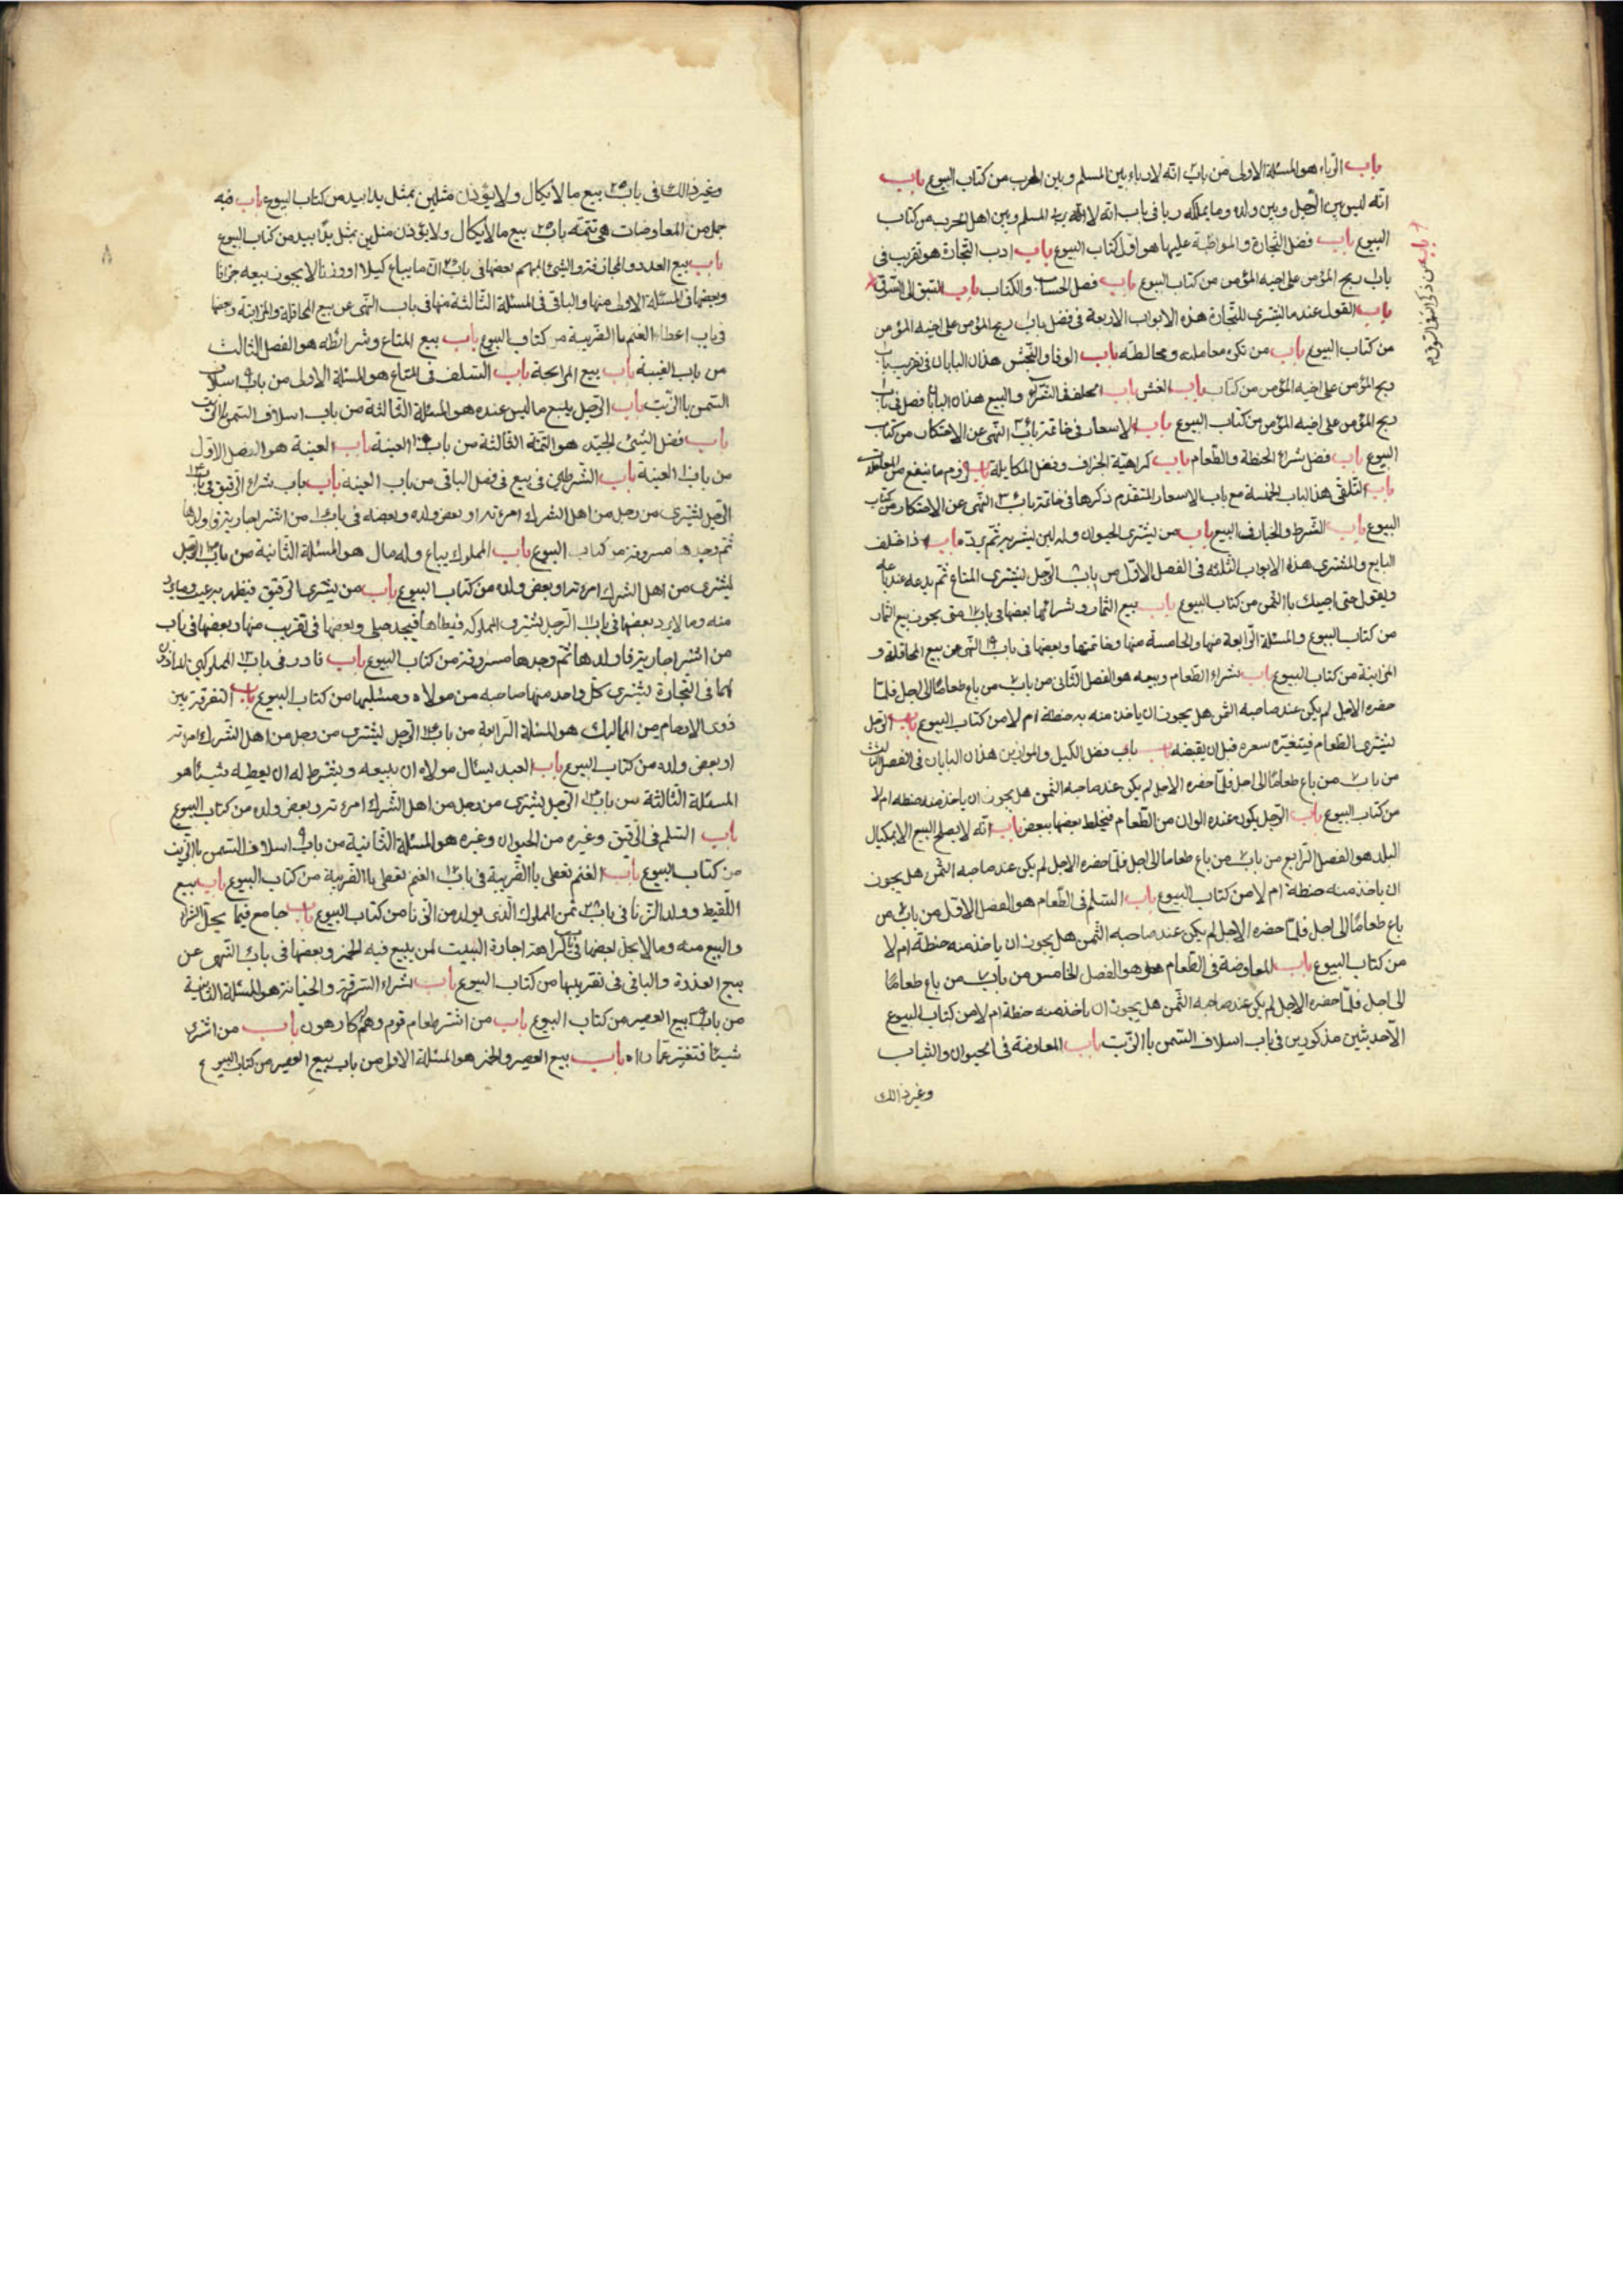 باب الرّباء هو المسئلة الاولى من باب انّه لا رباء بين المسلم وبين الحرب من كتاب البيوع باب
انّه ليس بين الرّجل وبين ولده وما يملكه ربا فى باب انّه لا المسلم وبين اهل الحرب من كتاب
البيوع باب فضل التّجارة والمواظبة عليها هو اوّل كتاب البيوع باب ادب التّجارة هو تقريب فى
باب ربح المؤمن على اخيه المؤمن من كتاب البيوع باب فضل الحساب والكتاب باب السّبق الى السّوق
باب من ذكر اللّه فى السّوق
باب القول عند ما يشترى للتّجارة هذه الابواب الاربعة فى فضل باب ربح المؤمن على اخيه المؤمن
من كتاب البيوع باب من تكره معاملته ومخالطته باب الوفا والبخس هذان البابان فى تقريب باب
ربح المؤمن على اخيه المؤمن من كتاب باب الغش باب الحلف فى الشّراء والبيع هذان البابان فصل فى باب
ربح المؤمن على اخيه المؤمن من كتاب البيوع باب الاسعار فى خاتمة باب ٣ النّهى عن الاحتكار من كتاب
البيوع باب فضل شراء الحنطة والطّعام باب كراهيّة الجزاف وفضل المكايلة باب لزوم ما ينفع من المعاملات
باب التّلقّى هذا الباب الخمسة مع باب الاسعار المتقدّم ذكرها فى خاتمة باب ٣ النّهى عن الاحتكار من كتاب
البيوع باب الشّرط والخيار فى البيع باب من يشترى الحيوان وله لبن يشربه ثمّ يردّه باب اذا اختلف
البايع والمشترى هذه الابواب الثّلثة فى الفصل الاوّل من باب الرّجل يشترى المتاع ثمّ يدعه عند بايعه
ويقول حتى اجيئك باالثّمن من كتاب البيوع باب بيع الثّمار وشرائها بعضها فى باب متى يجوز بيع الثّمار
من كتاب البيوع والمسئلة الرّابعة منها والخامسة منها وخاتمتها وبعضها فى باب ١٩ النّهى عن بيع المحاقلة و
المزابنة من كتاب البيوع باب شراء الطّعام وبيعه هو الفصل الثّانى من باب ٧ من باع طعامًا الى اجل فلمّا
حضره الاجل لم يكن عند صاحبه الثّمن هل يجوز ان ياخذ منه به حنطة ام لا من كتاب البيوع باب الرّجل
يشترى الطّعام فيتغيّر سعره قبل ان يقبضه باب باب فضل الكيل والموازين هذان البابان فى الفصل الثالث
من باب ٧ من باع طعامًا الى اجل فلمّا حضره الاجل لم يكن عند صاحبه الثّمن هل يجوز ان ياخذ منه حنطه ام لا
من كتاب البيوع باب الرّجل يكون عنده الوان من الطّعام فيخلط بعضها ببعض باب انّه لا يصلح البيع الا بمكيال
البلد هو الفصل الرّابع من باب ٧ من باع طعاما الى اجل فلمّا حضره الاجل لم يكن عند صاحبه الثّمن هل يجوز
ان ياخذ منه حنطة ام لا من كتاب البيوع باب السّلم فى الطّعام هو الفصل الاوّل من باب ٧ من
باع طعامًا الى اجل فلمّا حضره الاجل لم يكن عند صاحبه الثّمن هل يجوز ان ياخذ منه حنطة ام لا
من كتاب البيوع باب المعاوضة فى الطّعام هو الفصل الخامس من باب ٧ من باع طعامًا
الى اجل فلمّا حضره الاجل لم يكن عند صاحبه الثّمن هل يجوز ان ياخذ منه حنطة ام لا من كتاب البيوع
الّا حديثين مذكورين فى باب اسلاف السّمن باالزّيت باب المعاوضة فى الحيوان والثياب
وغير ذالك
٨
وغير ذالك فى باب ٢٥ بيع ما لا يكال ولا يوزن مثلين بمثل يدا بيد من كتاب البيوع باب فيه
جمل من المعاوضات هى تتمّة باب ٢٥ بيع ما لا يكال ولا يوزن مثلين بمثل يدًا بيد من كتاب البيوع
باب بيع العدد والمجازفة والشّيئ المبهم بعضها فى باب انّ ما يباع كيلا او وزنا لا يجوز بيعه جزافا
وبعضها فى المسئلة الاولى منها والباقى فى المسئلة الثّالثة منها فى باب النّهى عن بيع المحاقلة والمزابنة وبعضها
فى باب اعطاء الغنم باالضّريبة من كتاب البيوع باب بيع المتاع وشرائطه هو الفصل الثالث
من باب العينة باب بيع المرابحة باب السّلف فى المتاع هو المسئلة الاولى من باب ٩ اسلاف
السّمن باالزّيت باب الرّجل يبيع ما ليس عنده هو المسئلة الثّالثة من باب اسلاف السّمن باالزّيت
باب فضل الشّيئ الجيّد هو التتمّة الثالثة من باب ١٠ العينة باب العينة هو الفصل الاوّل
من باب ١٠ العينة باب الشّرطين فى بيع فى فصل الباقى من باب العينه باب باب شراء الرّقيق فى باب ١٣
الرّجل يشترى من رجل من اهل الشرك امرءته او بعض ولده وبعضه فى باب من اشترا جارية فاولدها
ثمّ وجدها مسروقة من كتاب البيوع باب المملوك يباع وله مال هو المسئلة الثّانية من باب ١٣ الرّجل
يشترى من اهل الشرك امرءته او بعض ولده من كتاب البيوع باب من يشترى الرّقيق فيظهر به عيب وما يردّ
منه وما لا يرد بعضها فى باب ١١ الرّجل يشترى المملوكة فيطأها فيجد حبلى وبعضها فى تقريب منها وبعضها فى باب
من اشترا جارية فاولدها ثمّ وجدها مسروقة من كتاب البيوع باب نادر فى باب ١٣ المملوكين الماذون
لهما فى التّجارة يشترى كلّ واحد منهما صاحبه من مولاه ومسئليها من كتاب البيوع باب التفرقة بين
ذوى الارحام من المماليك هو المسئلة الرّابعة من باب ١٣ الرّجل يشترى من رجل من اهل الشّرك امرءته
او بعض ولده من كتاب البيوع باب العبد يسئال مولاه ان يبيعه ويشترط له ان يعطيه شيئا هو
المسئلة الثّالثة من باب ١٣ الرّجل يشترى من رجل من اهل الشّرك امرءته وبعض ولده من كتاب البيوع
باب السّلم فى الرّقيق وغيره من الحيوان وغيره هو المسئلة الثّانية من باب ٩ اسلاف السّمن باالزّيت
من كتاب البيوع باب الغنم تعطى باالضّريبة فى باب الغنم تعطى باالضّريبة من كتاب البيوع باب بيع
اللّقيط وولد الزّنا فى باب ثمن المملوك الّذى يولد من الزّنا من كتاب البيوع باب جامع فيما يحلّ الشّراء
والبيع منه وما لا يحل بعضها فى باب كراهة اجارة البيت لمن يبيع فيه الخمر وبعضها فى باب النّهى عن
بيع العذرة والباقى فى تقريبها من كتاب البيوع باب شراء السّرقة والخيانة هو المسئلة الثّانية
من باب بيع العصير من كتاب البيوع باب من اشترا طعام قوم وهم كارهون باب من اشترى
شيئا فتغيّر عمّا راه باب بيع العصير والخمر هو المسئلة الاولى من باب بيع العصير من كتاب البيوع